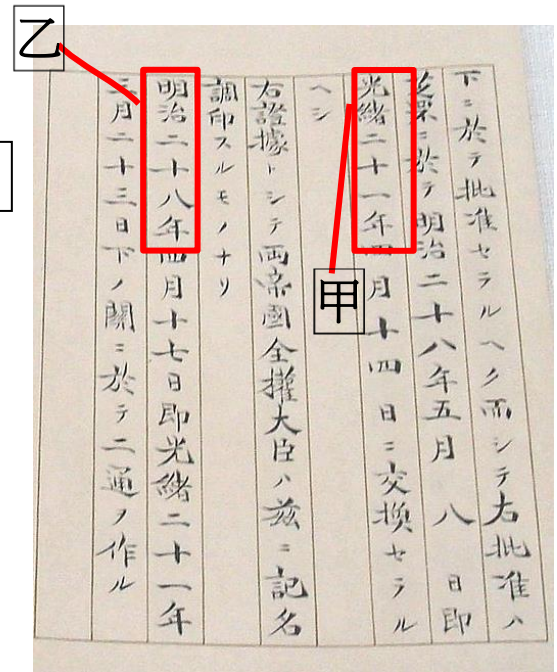 下ニ於テ批准セラルヘク而シテ右批准ハ
芝罘ニ於テ明治二十八年五月八日即
光緒二十一年四月十四日ニ交換セラル
ヘシ
右證據トシテ両帝國全權大臣ハ茲ニ記名
調印スルモノナリ
明治二十八年四月十七日即光緒二十一年
三月二十三日下ノ關ニ於テ二通ヲ作ル
甲
乙